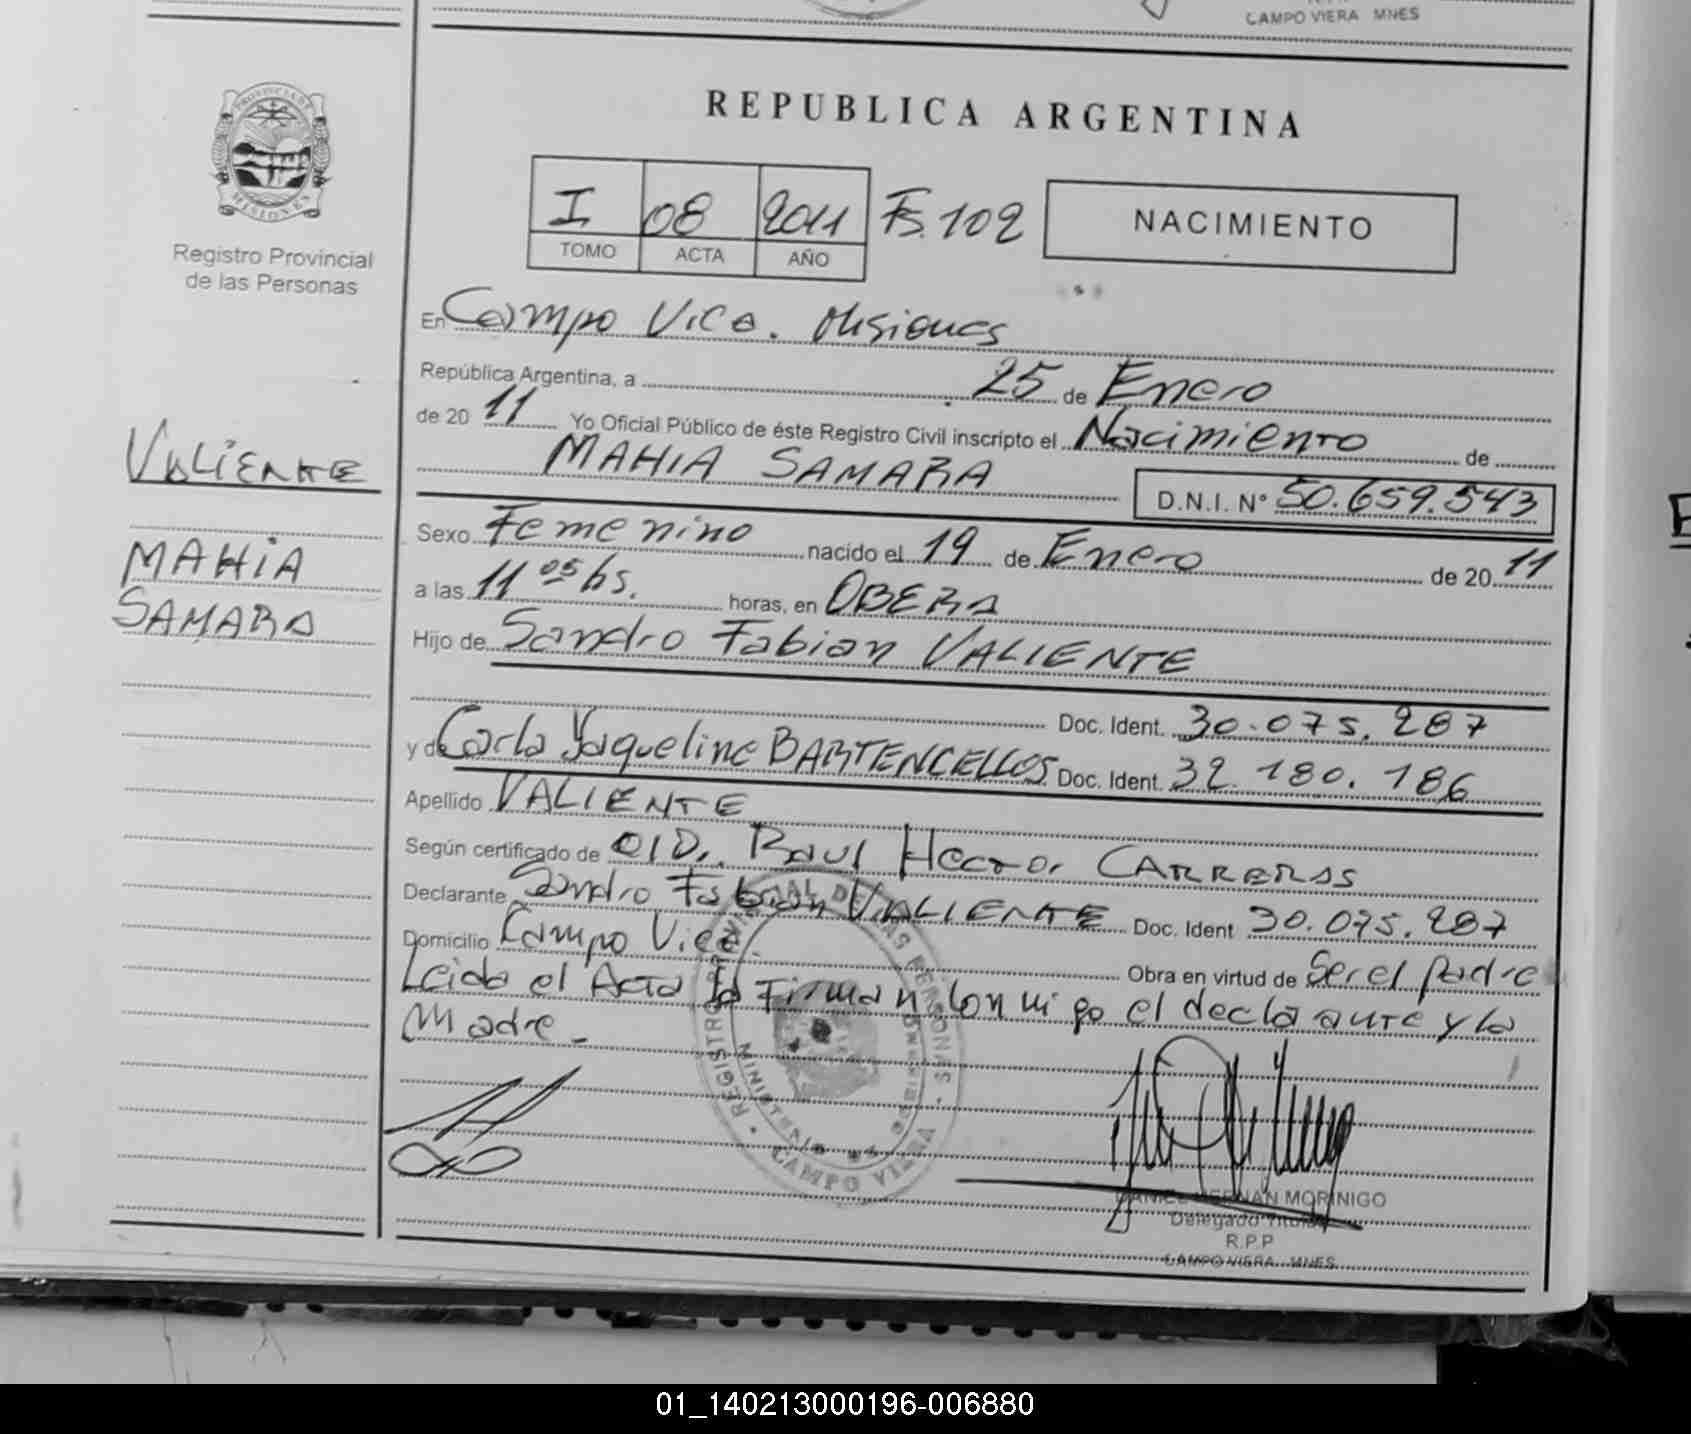 CAMPO VIERA MNES
PROVINCIA DE
MISIONES
Registro Provincial
de las Personas
REPUBLICA ARGENTINA
I 08 2011 Fs. 102
TOMO ACTA AÑO
NACIMIENTO
En Campo Viea. Misiones
República Argentina, a 25 de Enero
de 20 11 Yo Oficial Público de éste Registro Civil inscripto el Nacimiento de
MAHIA SAMARA D.N.I. N° 50.659.543
VALIENTE
MAHIA
SAMARA
Sexo Femenino nacido el 19 de Enero de 20 11
a las 11 05 hs. horas, en OBERA
Hijo de Sandro Fabian VALIENTE
Doc. Ident. 30.075.287
y de Carla Yaqueline BARTENCELLOS Doc. Ident. 32.180.186
Apellido VALIENTE
Según certificado de Raul Hector CARRERAS
Declarante Sandro Fabian VALIENTE Doc. Ident 30.075.287
Domicilio Campo Viea.
Obra en virtud de Ser el padre
Leida el Acta la Firman Conmigo el declarante y la
Madre.-
REGISTRO PROVINCIAL DE LAS PERSONAS
CAMPO VIERA
DANIEL HERNAN MORINIGO
Delegado Titular
R.P.P
CAMPO VIERA MNES
01_140213000196-006880